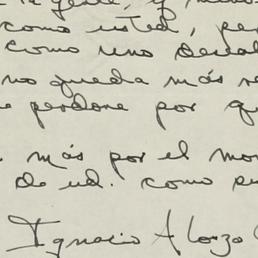 la gente, y
como usted, per
como uno desea
no queda más re
perdone por qu
. más por el mom
de ud. como su
Ignacio Alonzo